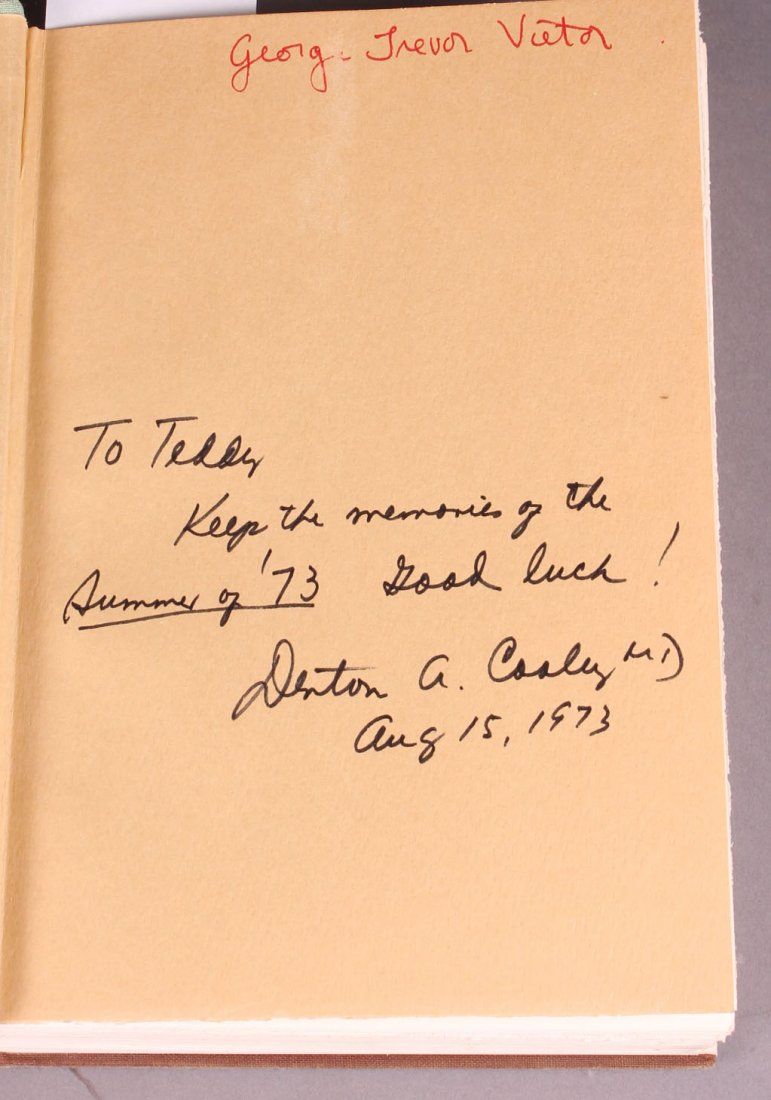 Georg. Trevor Vietor
To Teddy
Keep the memories of the
Summer of '73 Good luck!
Denton A. Cooley MD
Aug 15, 1973